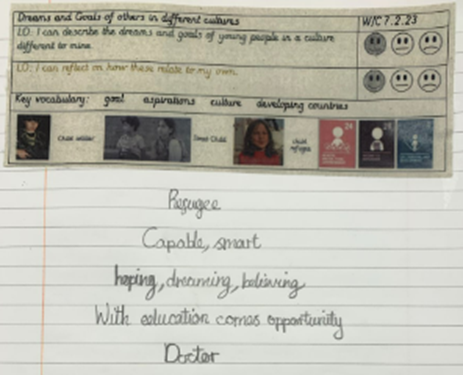 Dreams and Goals of others in different cultures
W/C 7.2.23
LO: I can describe the dreams and goals of young people in a culture
different to mine.
LO: I can reflect on how these relate to my own.
Key vocabulary: goal aspirations culture developing countries
Child soldier
Street Child
child
refugee
Refugee
Capable, smart
hoping, dreaming, believing
With education comes opportunity
Doctor